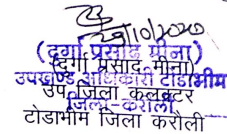 29/10/2020
(दुर्गा प्रसाद मीना)
(दुर्गा प्रसाद मीना)
उपखण्ड अधिकारी टोडाभीम
उप जिला कलक्टर
जिला-करौली
टोडाभीम जिला करौली